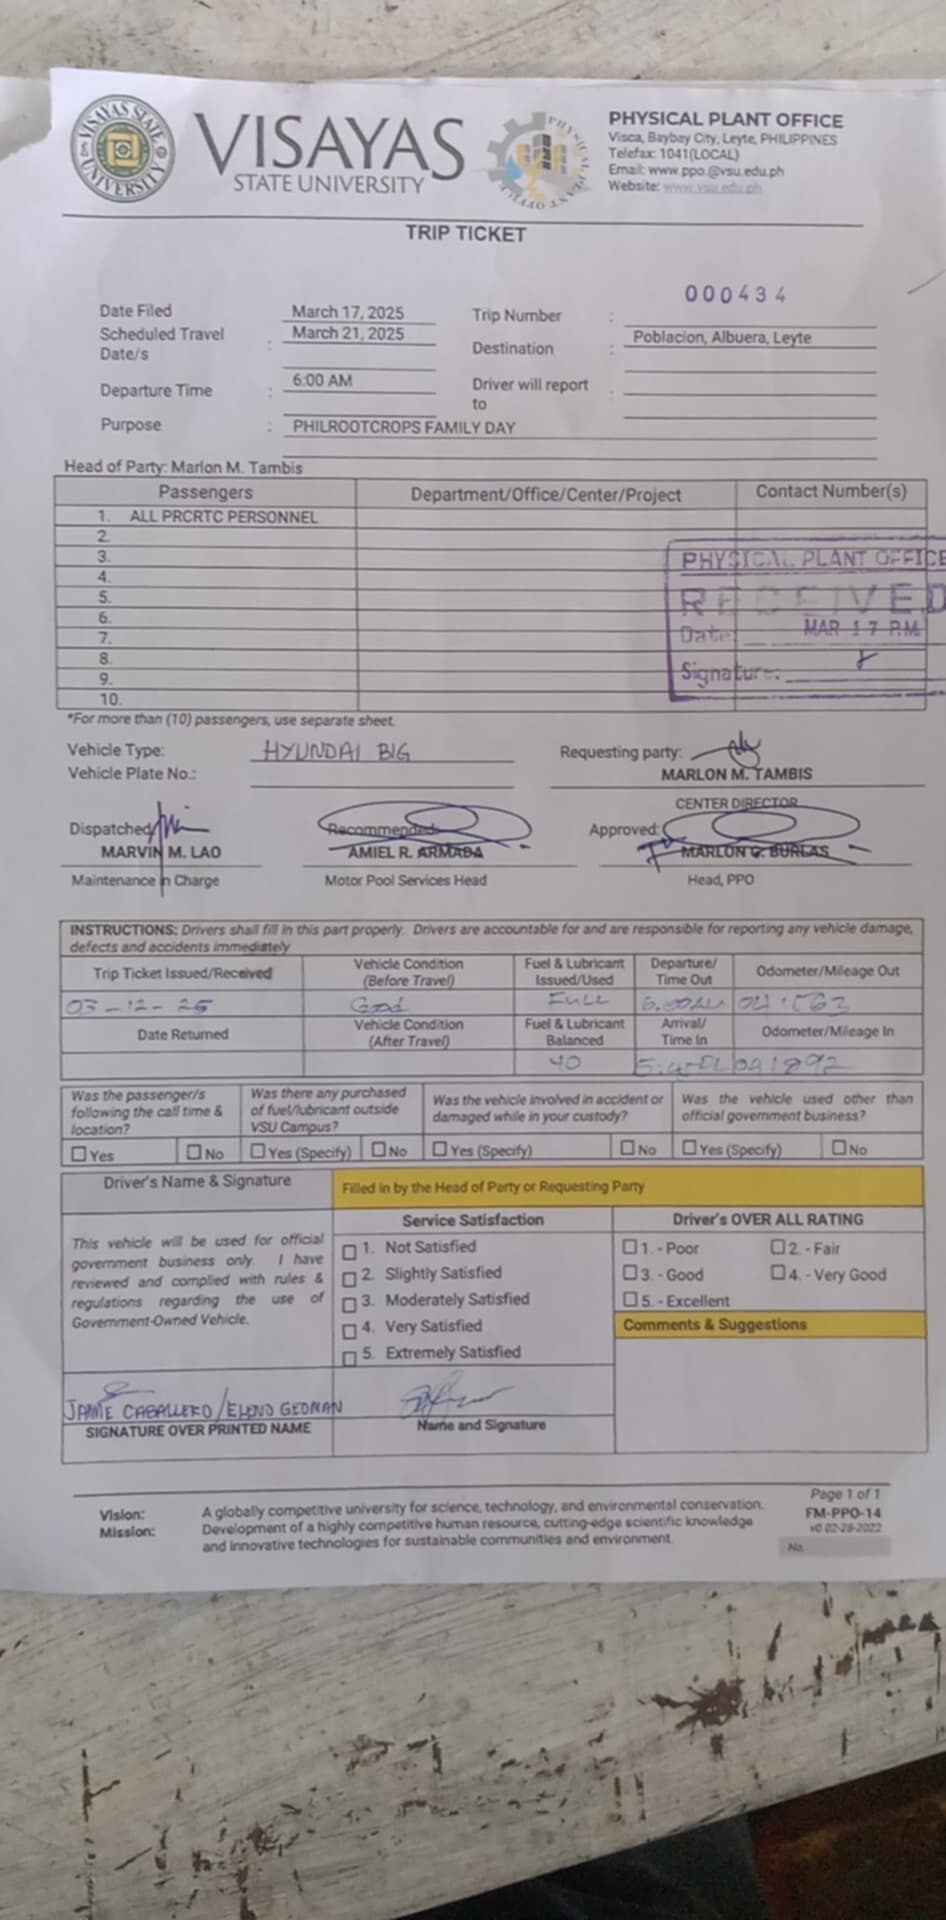 VISAYAS STATE UNIVERSITY
VISAYAS
STATE UNIVERSITY
PHYSICAL PLANT OFFICE
PHYSICAL PLANT OFFICE
Visca, Baybay City, Leyte, PHILIPPINES
Telefax: 1041(LOCAL)
Email: www.ppo.@vsu.edu.ph
Website: www.vsu.edu.ph
TRIP TICKET
000434
Date Filed March 17, 2025 Trip Number :
Scheduled Travel Date/s : March 21, 2025 Destination : Poblacion, Albuera, Leyte
Departure Time : 6:00 AM Driver will report to :
Purpose : PHILROOTCROPS FAMILY DAY
Head of Party: Marlon M. Tambis
Passengers Department/Office/Center/Project Contact Number(s)
1. ALL PRCRTC PERSONNEL
2.
3.
4.
5.
6.
7.
8.
9.
10.
PHYSICAL PLANT OFFICE
RECEIVED
Date: MAR 17 P.M.
Signature:
*For more than (10) passengers, use separate sheet.
Vehicle Type: HYUNDAI BIG Requesting party:
Vehicle Plate No.: MARLON M. TAMBIS
CENTER DIRECTOR
Dispatched Recommended: Approved:
MARVIN M. LAO AMIEL R. ARMADA MARLON G. BURLAS
Maintenance in Charge Motor Pool Services Head Head, PPO
INSTRUCTIONS: Drivers shall fill in this part properly. Drivers are accountable for and are responsible for reporting any vehicle damage,
defects and accidents immediately
Trip Ticket Issued/Received Vehicle Condition (Before Travel) Fuel & Lubricant Issued/Used Departure/ Time Out Odometer/Mileage Out
03-12-25 Good FULL
Date Returned Vehicle Condition (After Travel) Fuel & Lubricant Balanced Arrival/ Time In Odometer/Mileage In
40 041892
Was the passenger/s following the call time & location? Was there any purchased of fuel/lubricant outside VSU Campus? Was the vehicle involved in accident or damaged while in your custody? Was the vehicle used other than official government business?
☐ Yes ☐ No ☐ Yes (Specify) ☐ No ☐ Yes (Specify) ☐ No ☐ Yes (Specify) ☐ No
Driver's Name & Signature Filled in by the Head of Party or Requesting Party
Service Satisfaction Driver's OVER ALL RATING
This vehicle will be used for official
government business only. I have
reviewed and complied with rules &
regulations regarding the use of
Government-Owned Vehicle.
☐ 1. Not Satisfied
☐ 2. Slightly Satisfied
☐ 3. Moderately Satisfied
☐ 4. Very Satisfied
☐ 5. Extremely Satisfied
☐ 1. - Poor ☐ 2. - Fair
☐ 3. - Good ☐ 4. - Very Good
☐ 5. - Excellent
Comments & Suggestions
JAIME CABALLERO/ELENO GEDMAN
SIGNATURE OVER PRINTED NAME Name and Signature
Page 1 of 1
FM-PPO-14
v0 02-28-2022
No.
Vision: A globally competitive university for science, technology, and environmental conservation.
Mission: Development of a highly competitive human resource, cutting-edge scientific knowledge
and innovative technologies for sustainable communities and environment.